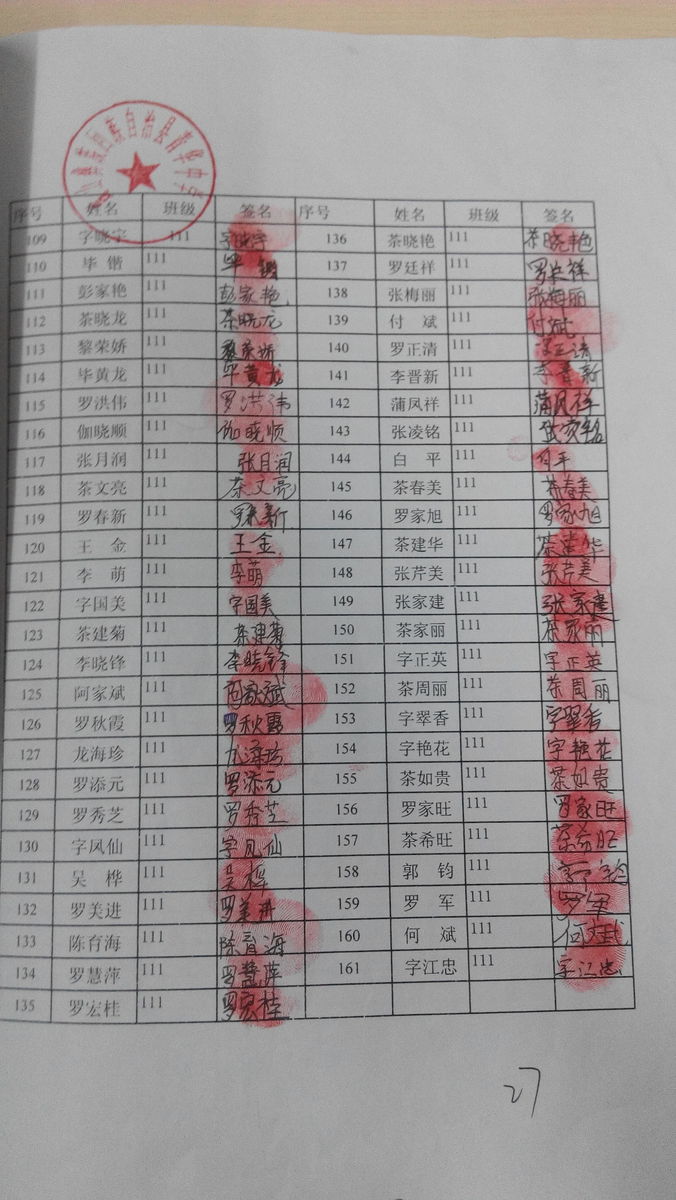 序号 姓名 班级 签名 序号 姓名 班级 签名
109 字晓宇 111 字晓宇 136 茶晓艳 111 茶晓艳
110 毕锴 111 毕锴 137 罗廷祥 111 罗廷祥
111 彭家艳 111 彭家艳 138 张梅丽 111 张梅丽
112 茶晓龙 111 茶晓龙 139 付斌 111 付斌
113 黎荣娇 111 黎荣娇 140 罗正清 111 罗正清
114 毕黄龙 111 毕黄龙 141 李晋新 111 李晋新
115 罗洪伟 111 罗洪伟 142 蒲凤祥 111 蒲凤祥
116 伽晓顺 111 伽晓顺 143 张凌铭 111
117 张月润 111 张月润 144 白平 111 白平
118 茶文亮 111 茶文亮 145 茶春美 111 茶春美
119 罗春新 111 罗春新 146 罗家旭 111 罗家旭
120 王金 111 王金 147 茶建华 111 茶建华
121 李萌 111 李萌 148 张芹美 111 张芹美
122 字国美 111 字国美 149 张家建 111 张家建
123 茶建菊 111 茶建菊 150 茶家丽 111 茶家丽
124 李晓锋 111 李晓锋 151 字正英 111 字正英
125 阿家斌 111 阿家斌 152 茶周丽 111 茶周丽
126 罗秋霞 111 罗秋霞 153 字翠香 111 字翠香
127 龙海珍 111 154 字艳花 111 字艳花
128 罗添元 111 罗添元 155 茶如贵 111 茶如贵
129 罗秀芝 111 罗秀芝 156 罗家旺 111 罗家旺
130 字凤仙 111 字凤仙 157 茶希旺 111 茶希旺
131 吴桦 111 吴桦 158 郭钧 111
132 罗美进 111 罗美进 159 罗军 111 罗军
133 陈育海 111 陈育海 160 何斌 111 何斌
134 罗慧萍 111 罗慧萍 161 字江忠 111 字江忠
135 罗宏桂 111 罗宏桂
27